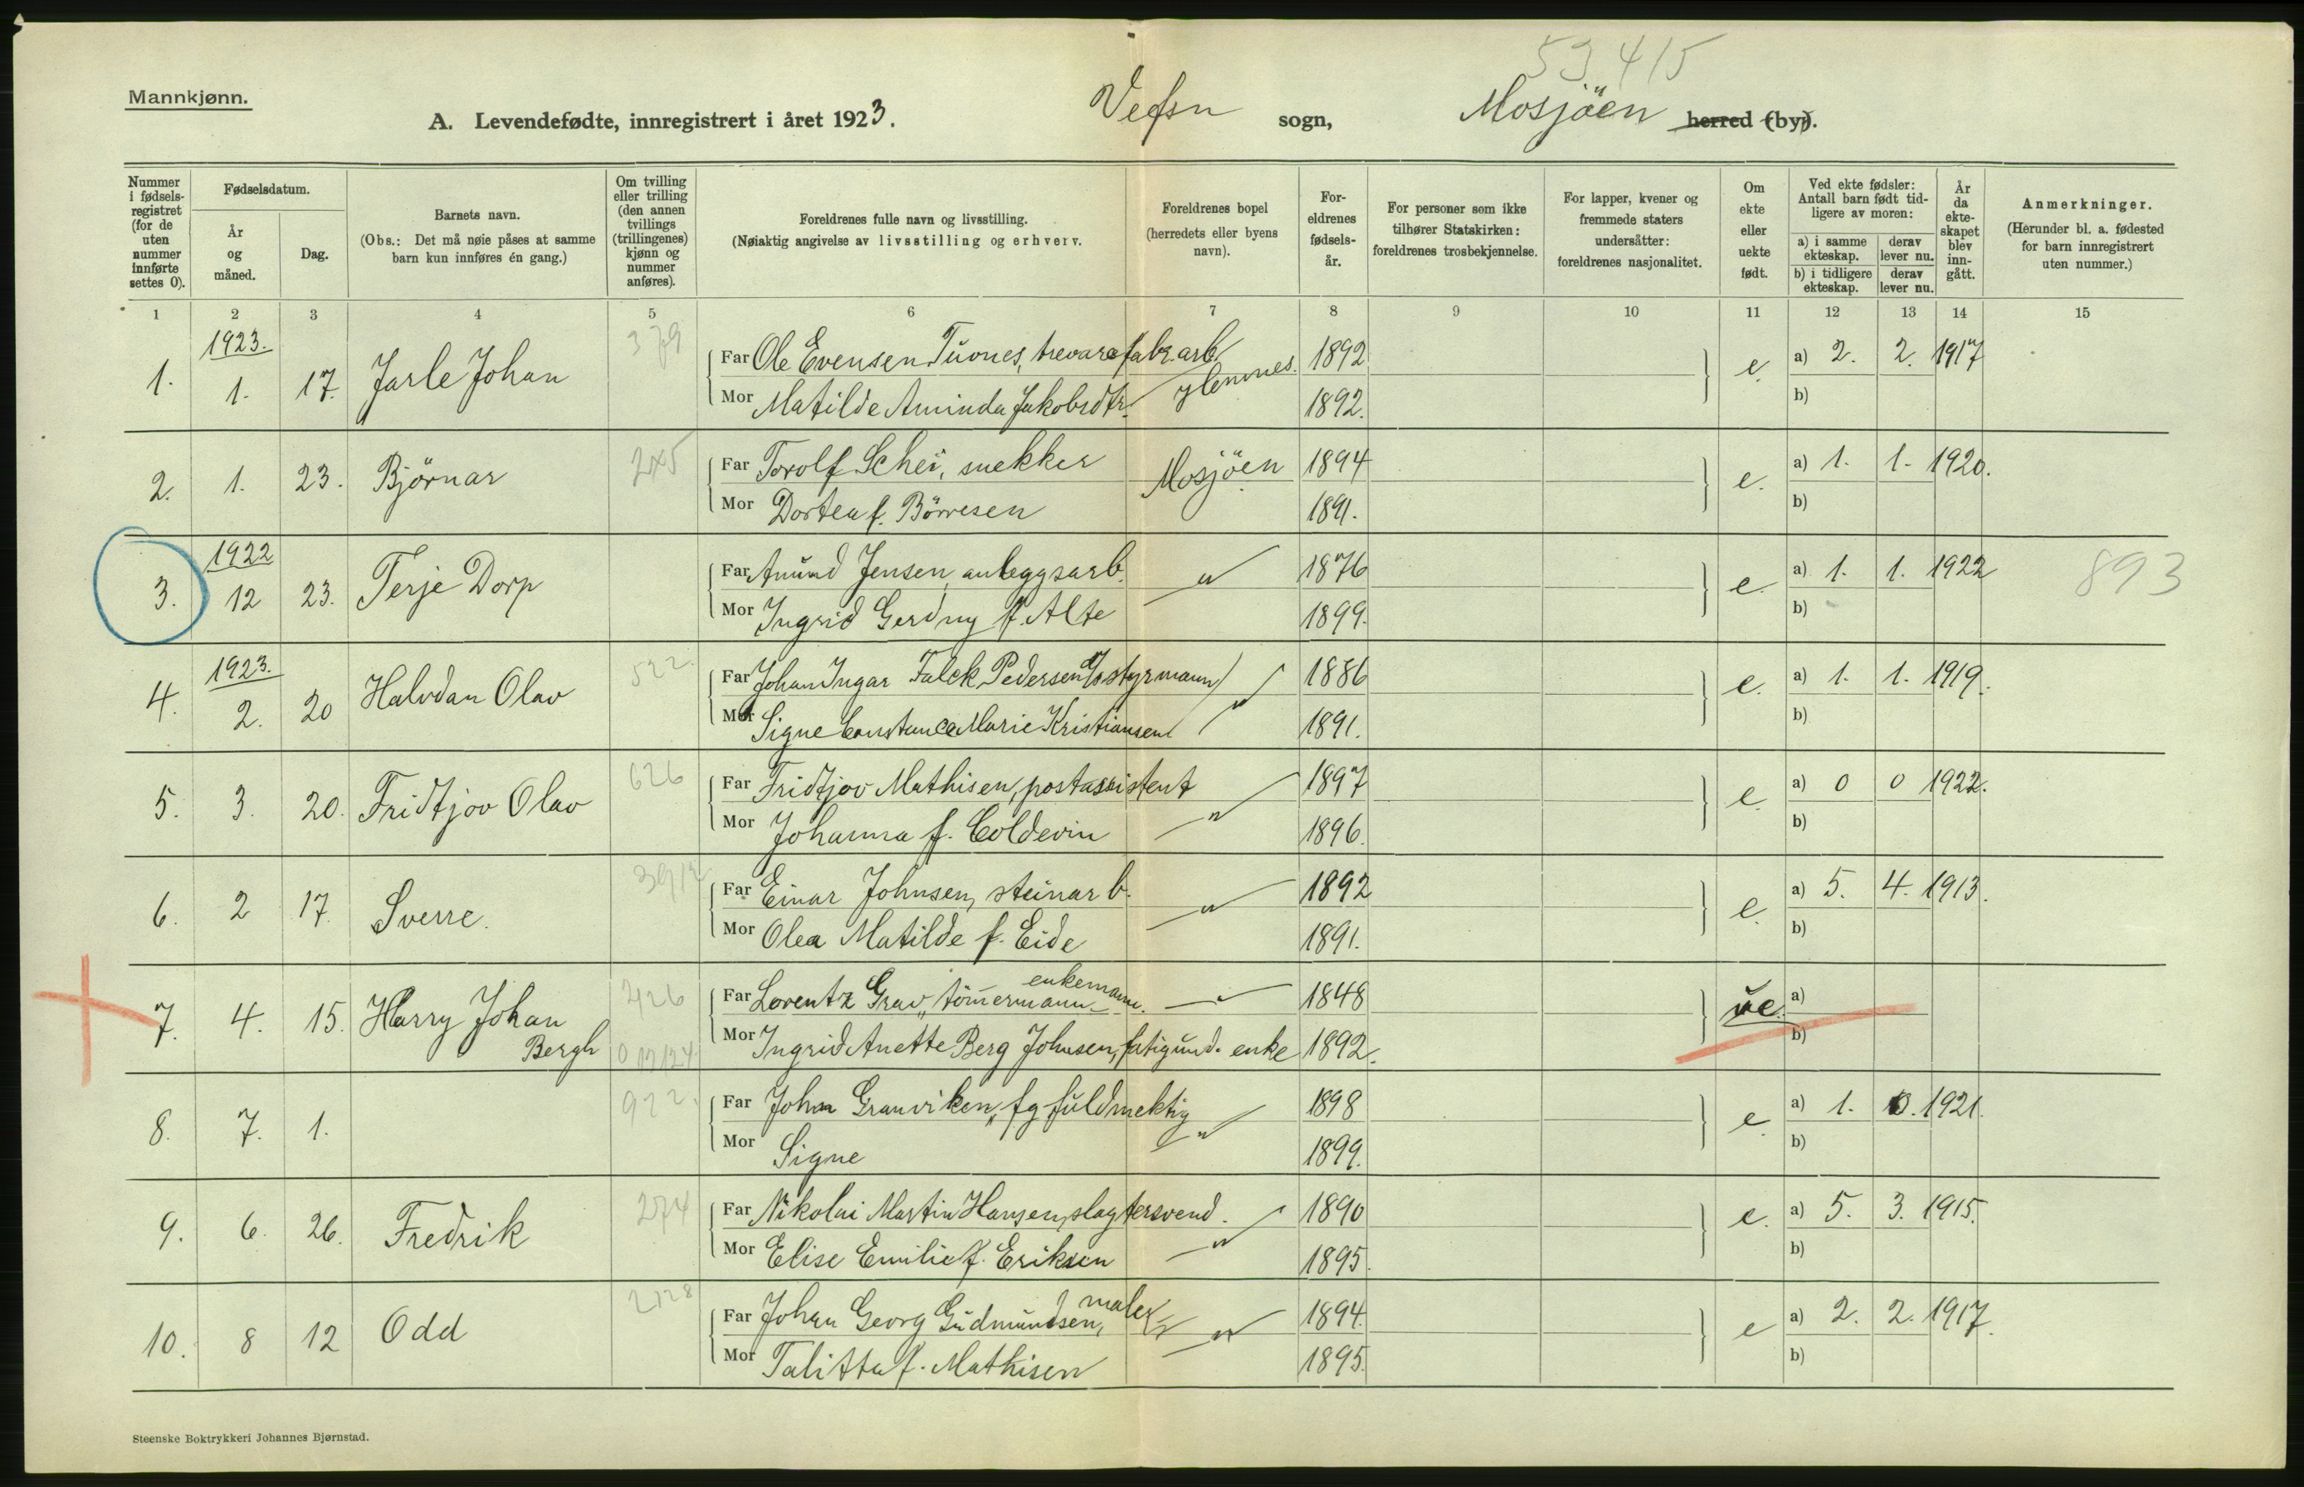 53 415
Mannkjønn.
A. Levendefødte, innregistrert i året 1923. Vefsn sogn, Mosjöen herred (by).
Nummer i fødsels-registret (for de uten nummer innførte settes 0).
Fødselsdatum.
År og måned.
Dag.
Barnets navn.
(Obs.: Det må nøie påses at samme barn kun innføres én gang.)
Om tvilling eller trilling (den annen tvillings (trillingenes) kjønn og nummer anføres).
Foreldrenes fulle navn og livsstilling.
(Nøiaktig angivelse av livsstilling og erhverv.
Foreldrenes bopel (herredets eller byens navn).
For-eldrenes fødsels-år.
For personer som ikke tilhører Statskirken: foreldrenes trosbekjennelse.
For lapper, kvener og fremmede staters undersåtter: foreldrenes nasjonalitet.
Om ekte eller uekte født.
Ved ekte fødsler: Antall barn født tid-ligere av moren:
a) i samme ekteskap. derav lever nu.
b) i tidligere ekteskap. derav lever nu.
År da ekte-skapet blev inn-gått.
Anmerkninger.
(Herunder bl. a. fødested for barn innregistrert uten nummer.)
1 2 3 4 5 6 7 8 9 10 11 12 13 14 15
1923. 379
1. 1. 17. Jarle Johan Far Ole Evensen Tuvnes, trevarefabr. arb. 1892 e. a) 2. 2. 1917
Mor Matilde Aminda Jakobsdtr. 1892. b)
2. 1. 23. Björnar 245 Far Torolf Schei, snekker Mosjöen 1894 e. a) 1. 1. 1920.
Mor Dortea f. Börresen 1891. b)
1922
3. 12 23. Terje Dorp Far Anund Jensen, anleggsarb. " 1876 e. a) 1. 1. 1922 893
Mor Ingrid Gerdny f. Alte 1899. b)
1923. 522
4. 2. 20 Halvdan Olav Far Johan Ingar Falck Pedersen (styrmann) " 1886 e. a) 1. 1. 1919.
Mor Signe Constance Marie Kristiansen " 1891. b)
5. 3. 20. Fridtjov Olav 626 Far Fridtjov Mathisen, postassistent 1897 e. a) 0 0 1922.
Mor Johanna f. Coldevin " 1896. b)
6. 2 17 Sverre. Far Einar Johnsen, steinarb. " 1892 e. a) 5. 4. 1913.
Mor Olea Matilde f. Eide 1891. b)
7. 4. 15. Harry Johan Bergh 426 Far Lorentz Grav, tömermann enkemann. " 1848 ue. a)
Mor Ingrid Anette Berg Johnsen, fatigund. enke 1892. b)
8. 7. 1. 922. Far Johan Granviken, fg fuldmektig 1898 e. a) 1. 0. 1921.
Mor Signe " 1899. b)
9. 6. 26. Fredrik 274 Far Nikolai Martin Hansen, slagtersvend. 1890 e. a) 5. 3. 1915.
Mor Elise Emilie f. Eriksen " 1895. b)
10. 8 12 Odd Far Johan Georg Gudmundsen, maler " 1894. e a) 2. 2. 1917.
Mor Talitta f. Mathisen 1895. b)
Steenske Boktrykkeri Johannes Bjørnstad.